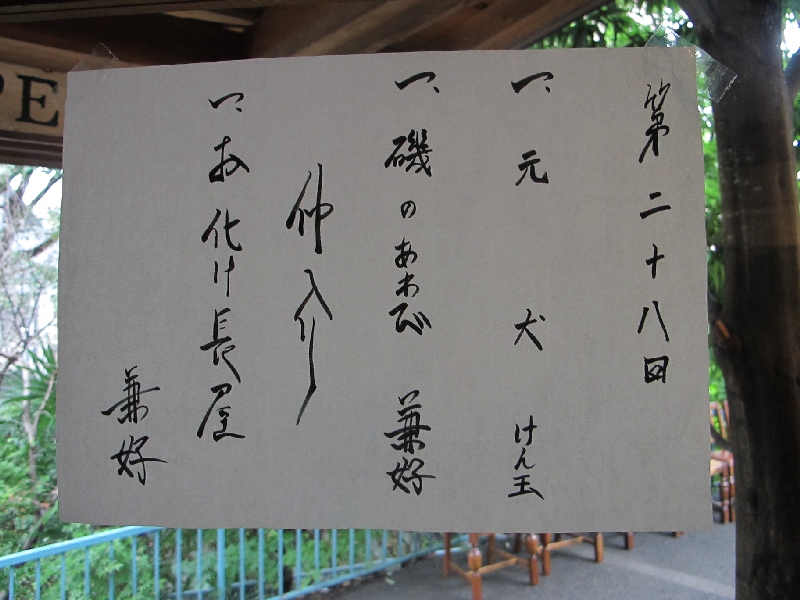 第二十八回
一、元犬 けん玉
一、磯のあわび 兼好
仲入り
一、お化け長屋
兼好
PE